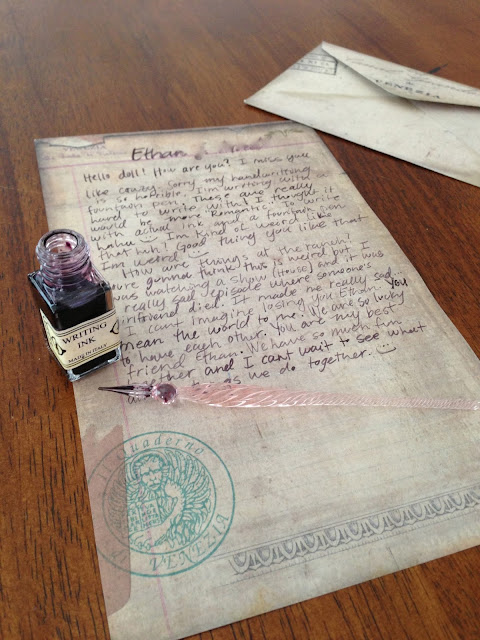 VENEZIA
Ethan
Hello doll! How are you? I miss you
like crazy. Sorry my handwriting
is so horrible. I'm writing with a
fountain pen! These are really
hard to write with! I thought it
would be more romantic. To write
with actual ink and a fountain pen
haha I'm kind of weird like
that huh! Good thing you like that
I'm weird
How are things at the ranch?
You're gonna think this is weird but I
was watching a show (House) and it was
a really sad episode where someone's
girlfriend died. It made me really sad...
I can't imagine losing you Ethan. You
mean the world to me. We are so lucky
to have each other. You are my best
friend Ethan. We have so much fun
together and I cant wait to see what
as we do together.
WRITING
INK
MADE IN ITALY
Il Quaderno
VENEZIA